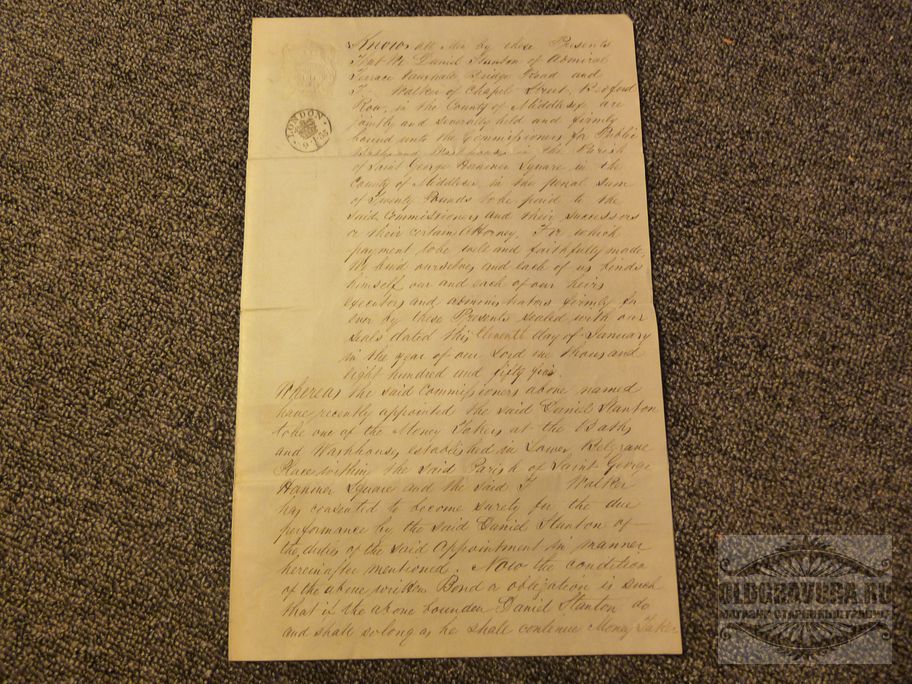 LONDON
Know all Men by these Presents
that We Daniel Stanton of Admiral
Terrace Vauxhall Bridge Road and
T Walker of Chapel Street, Bedford
Row, in the County of Middlesex are
jointly and severally held and firmly
bound unto the Commissioners for Public
Baths and Washhouses in the Parish
of Saint George Hanover Square in the
County of Middlesex in the penal sum
of Twenty Pounds to be paid to the
said Commissioners and their successors
or their certain Attorney For which
payment to be well and faithfully made
We bind ourselves and each of us binds
himself our and each of our heirs
executors and administrators firmly for
ever by these Presents sealed with our
seals dated this day of January
in the year of our Lord one thousand
eight hundred and fifty
Whereas the said Commissioners above named
have recently appointed the said Daniel Stanton
to be one of the Money Takers at the Baths
and Washhouses established in Lower Belgrave
Place within the said Parish of Saint George
Hanover Square and the said T Walker
has consented to become surety for the due
performance by the said Daniel Stanton of
the duties of the said Appointment in manner
hereinafter mentioned. Now the condition
of the above written Bond or obligation is such
that if the above bounden Daniel Stanton do
and shall so long as he shall continue Money Taker
OLDGRAVURA.RU
МАГАЗИН СТАРИННЫХ ГРАВЮР